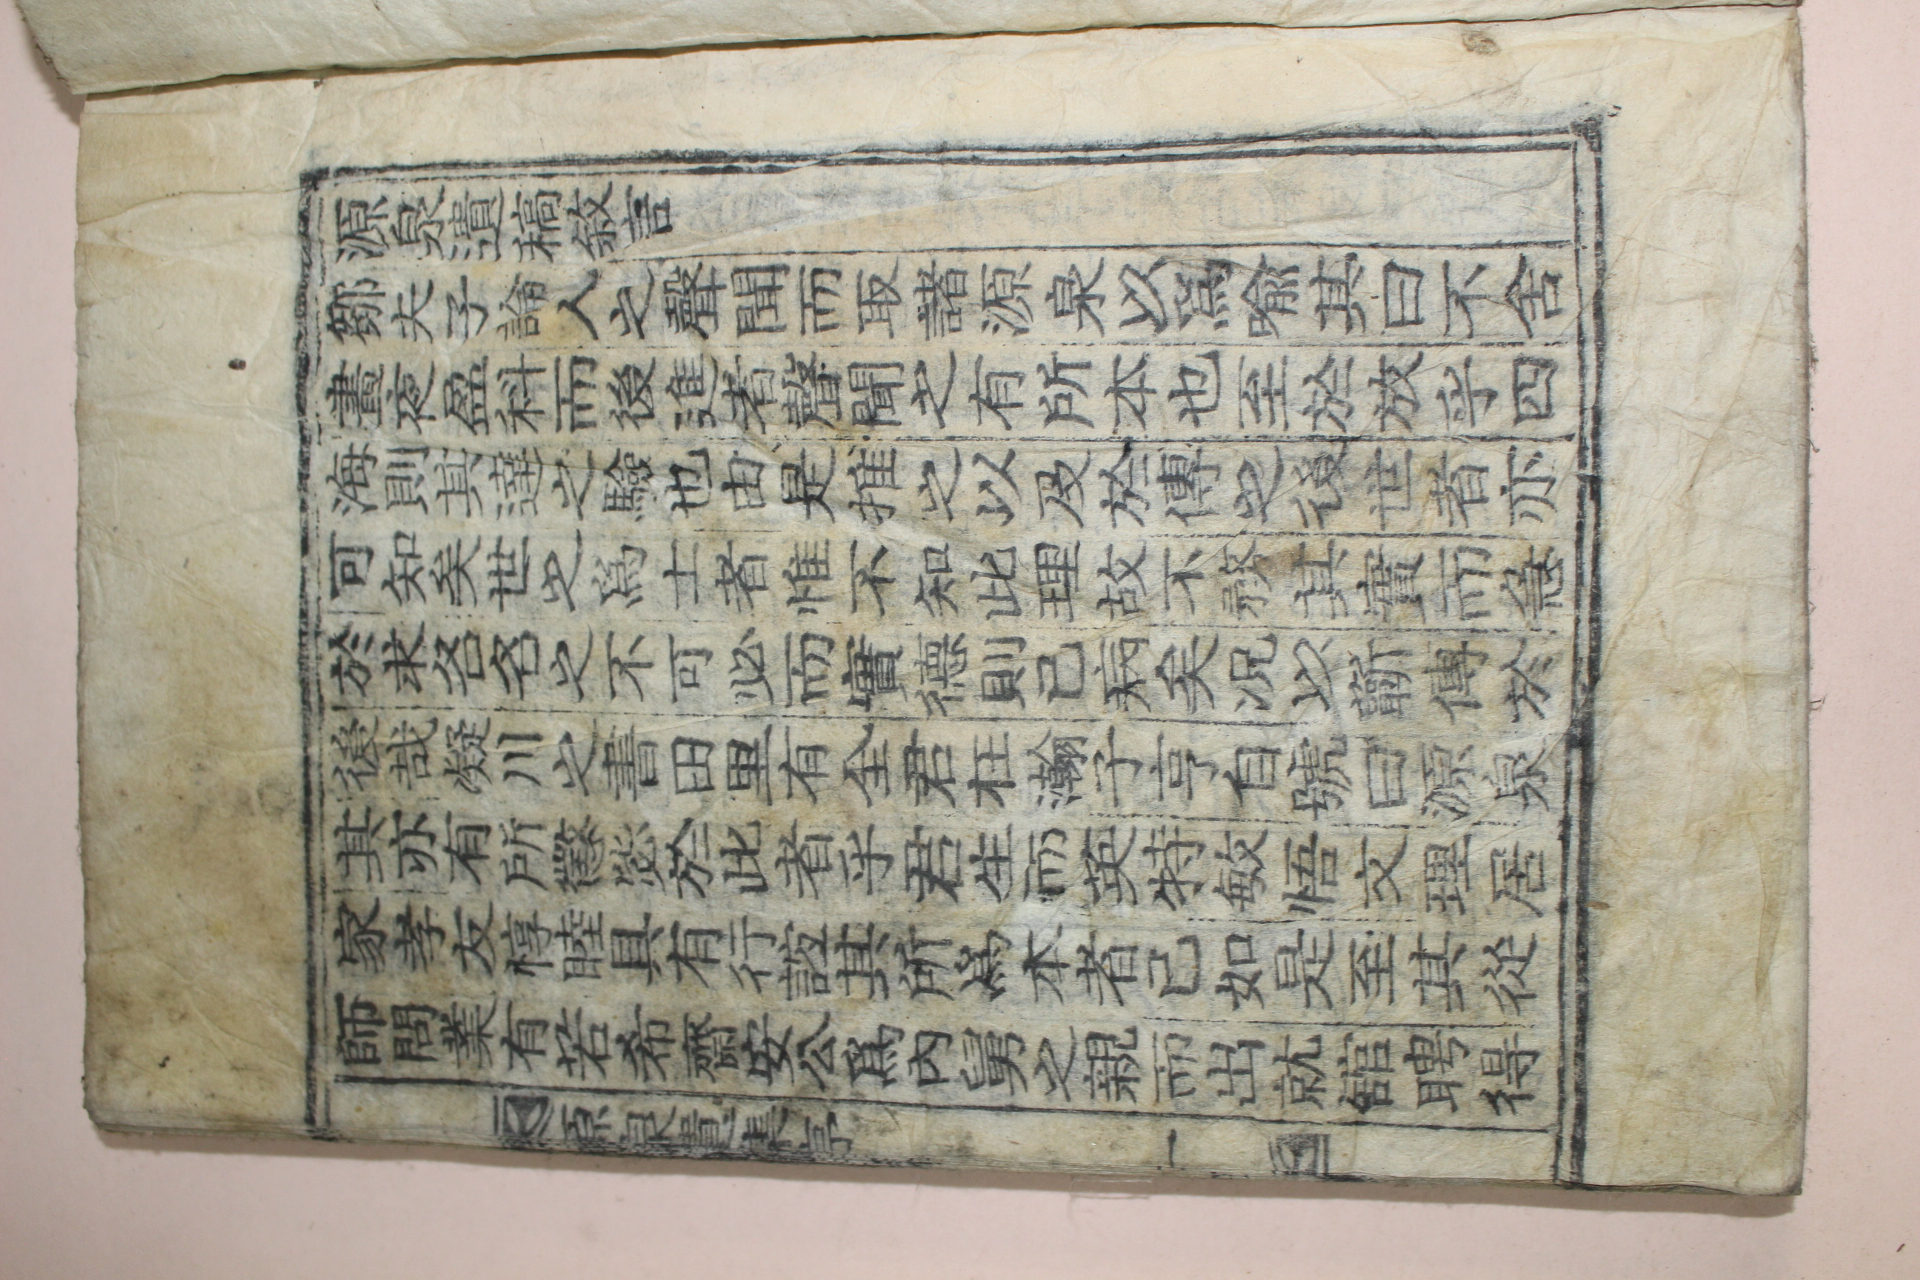 源泉遺稿敘言
鄒夫子論人之聲聞而取諸源泉以爲喩其曰不舍
晝夜盈科而後進者聲聞之有所本也至於放乎四
海則其達之驗也由是推之以及於傳之後世者亦
可知矣世之爲士者惟不知此理故不務其實而急
於求名名之不可必而實德則已病矣況以蘄傳於
後哉凝川之書田里有全君在瀚字亨自號曰源泉
其亦有所懲毖於此者乎君生而英特敏悟文理居
家孝友惇睦具有行誼其所爲本者已如是至其從
師問業有若希齋安公爲內舅之親而出就舘聘得
源泉遺集序
一